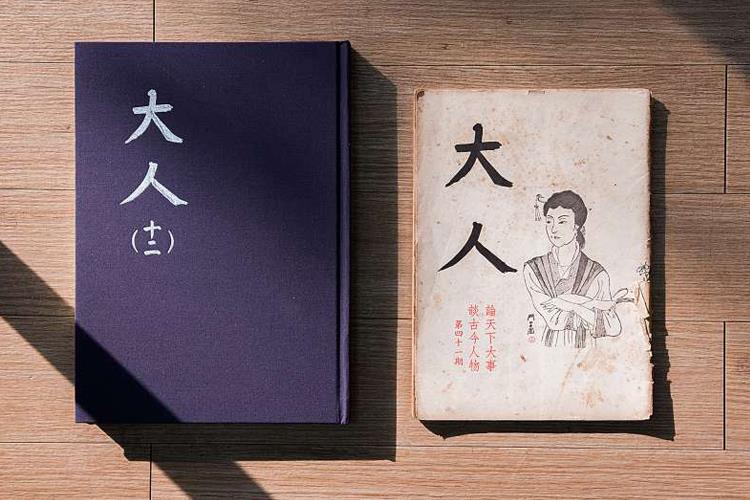 大人
(十二)
大人
論天下大事
談古今人物
第四十一期